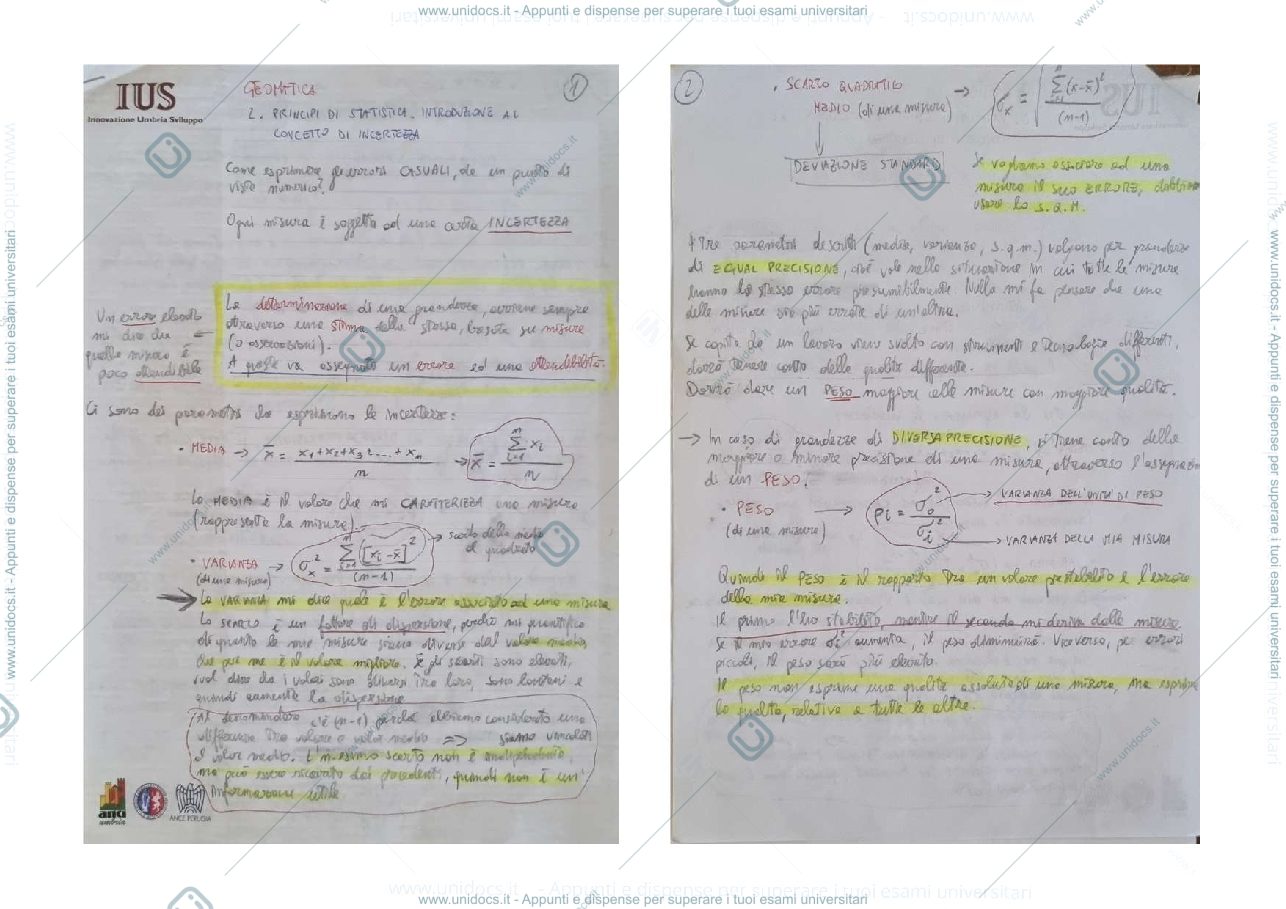 www.unidocs.it - Appunti e dispense per superare i tuoi esami universitari
IUS
Innovazione Umbria Sviluppo
GEOMATICA
1
2. PRINCIPI DI STATISTICA. INTRODUZIONE AL
CONCETTO DI INCERTEZZA
Come esprimere gli errori CASUALI, da un punto di
vista numerico?
Ogni misura è soggetta ad una certa INCERTEZZA
Un errore elevato
mi dice che
quella misura è
poco attendibile
La determinazione di una grandezza, avviene sempre
attraverso una stima della stessa, basata su misure
(o osservazioni).
A queste va assegnato un errore ed una attendibilità.
Ci sono dei parametri che esprimono le incertezze:
• MEDIA → x̄ = x1+x2+x3+...+xn / n → x̄ = Σ(i=1, n) xi / n
La MEDIA è il valore che mi CARATTERIZZA una misura
(rappresenta la misura)
• VARIANZA → σx² = Σ(i=1, n) [xi - x̄]² / (n-1) → scarto dalla media al quadrato
(di una misura)
La VARIANZA mi dice quale è l'errore associato ad una misura
Lo scarto è un fattore di dispersione, perchè mi quantifica
di quanto le mie misure siano diverse dal valore medio,
che per me è il valore migliore. Se gli scarti sono elevati,
vuol dire che i valori sono distanti tra loro, sono lontani e
quindi aumenta la dispersione
Al denominatore c'è (n-1) perchè abbiamo considerato una
differenza tra valore e valor medio => siamo vincolati
al valor medio. L'n-esimo scarto non è indipendente,
ma può essere ricavato dai precedenti, quindi non è un'
informazione utile
anci
umbria
ANCE PERUGIA
2
• SCARTO QUADRATICO
MEDIO (di una misura) → σx = √ Σ(i=1, n) (x-x̄)² / (n-1)
DEVIAZIONE STANDARD
Se vogliamo associare ad una
misura il suo ERRORE, dobbiamo
usare lo S.Q.M.
I tre parametri descritti (media, varianza, s.q.m.) valgono per grandezze
di EGUAL PRECISIONE, cioè vale nella situazione in cui tutte le misure
hanno lo stesso errore presumibilmente. Nulla mi fa pensare che una
delle misure sia più errata di un'altra.
Se capita che un lavoro viene svolto con strumenti e tecnologie differenti,
dovrò tenere conto delle qualità differente.
Dovrò dare un PESO maggiore alle misure con maggiore qualità.
→ In caso di grandezze di DIVERSA PRECISIONE, si tiene conto della
maggiore o minore precisione di una misura, attraverso l'assegnazione
di un PESO.
• PESO → pi = σ0² / σi² → VARIANZA DELL'UNITÀ DI PESO
(di una misura) → VARIANZA DELLA MIA MISURA
Quindi il PESO è il rapporto tra un valore prestabilito e l'errore
della mia misura.
Il primo l'ho stabilito, mentre il secondo mi deriva dalle misure.
Se il mio errore σi² aumenta, il peso diminuirà. Viceversa, per errori
piccoli, il peso sarà più elevato.
Il peso non esprime una qualità assoluta di una misura, ma esprime
la qualità, relativa a tutte le altre.
www.unidocs.it - Appunti e dispense per superare i tuoi esami universitari